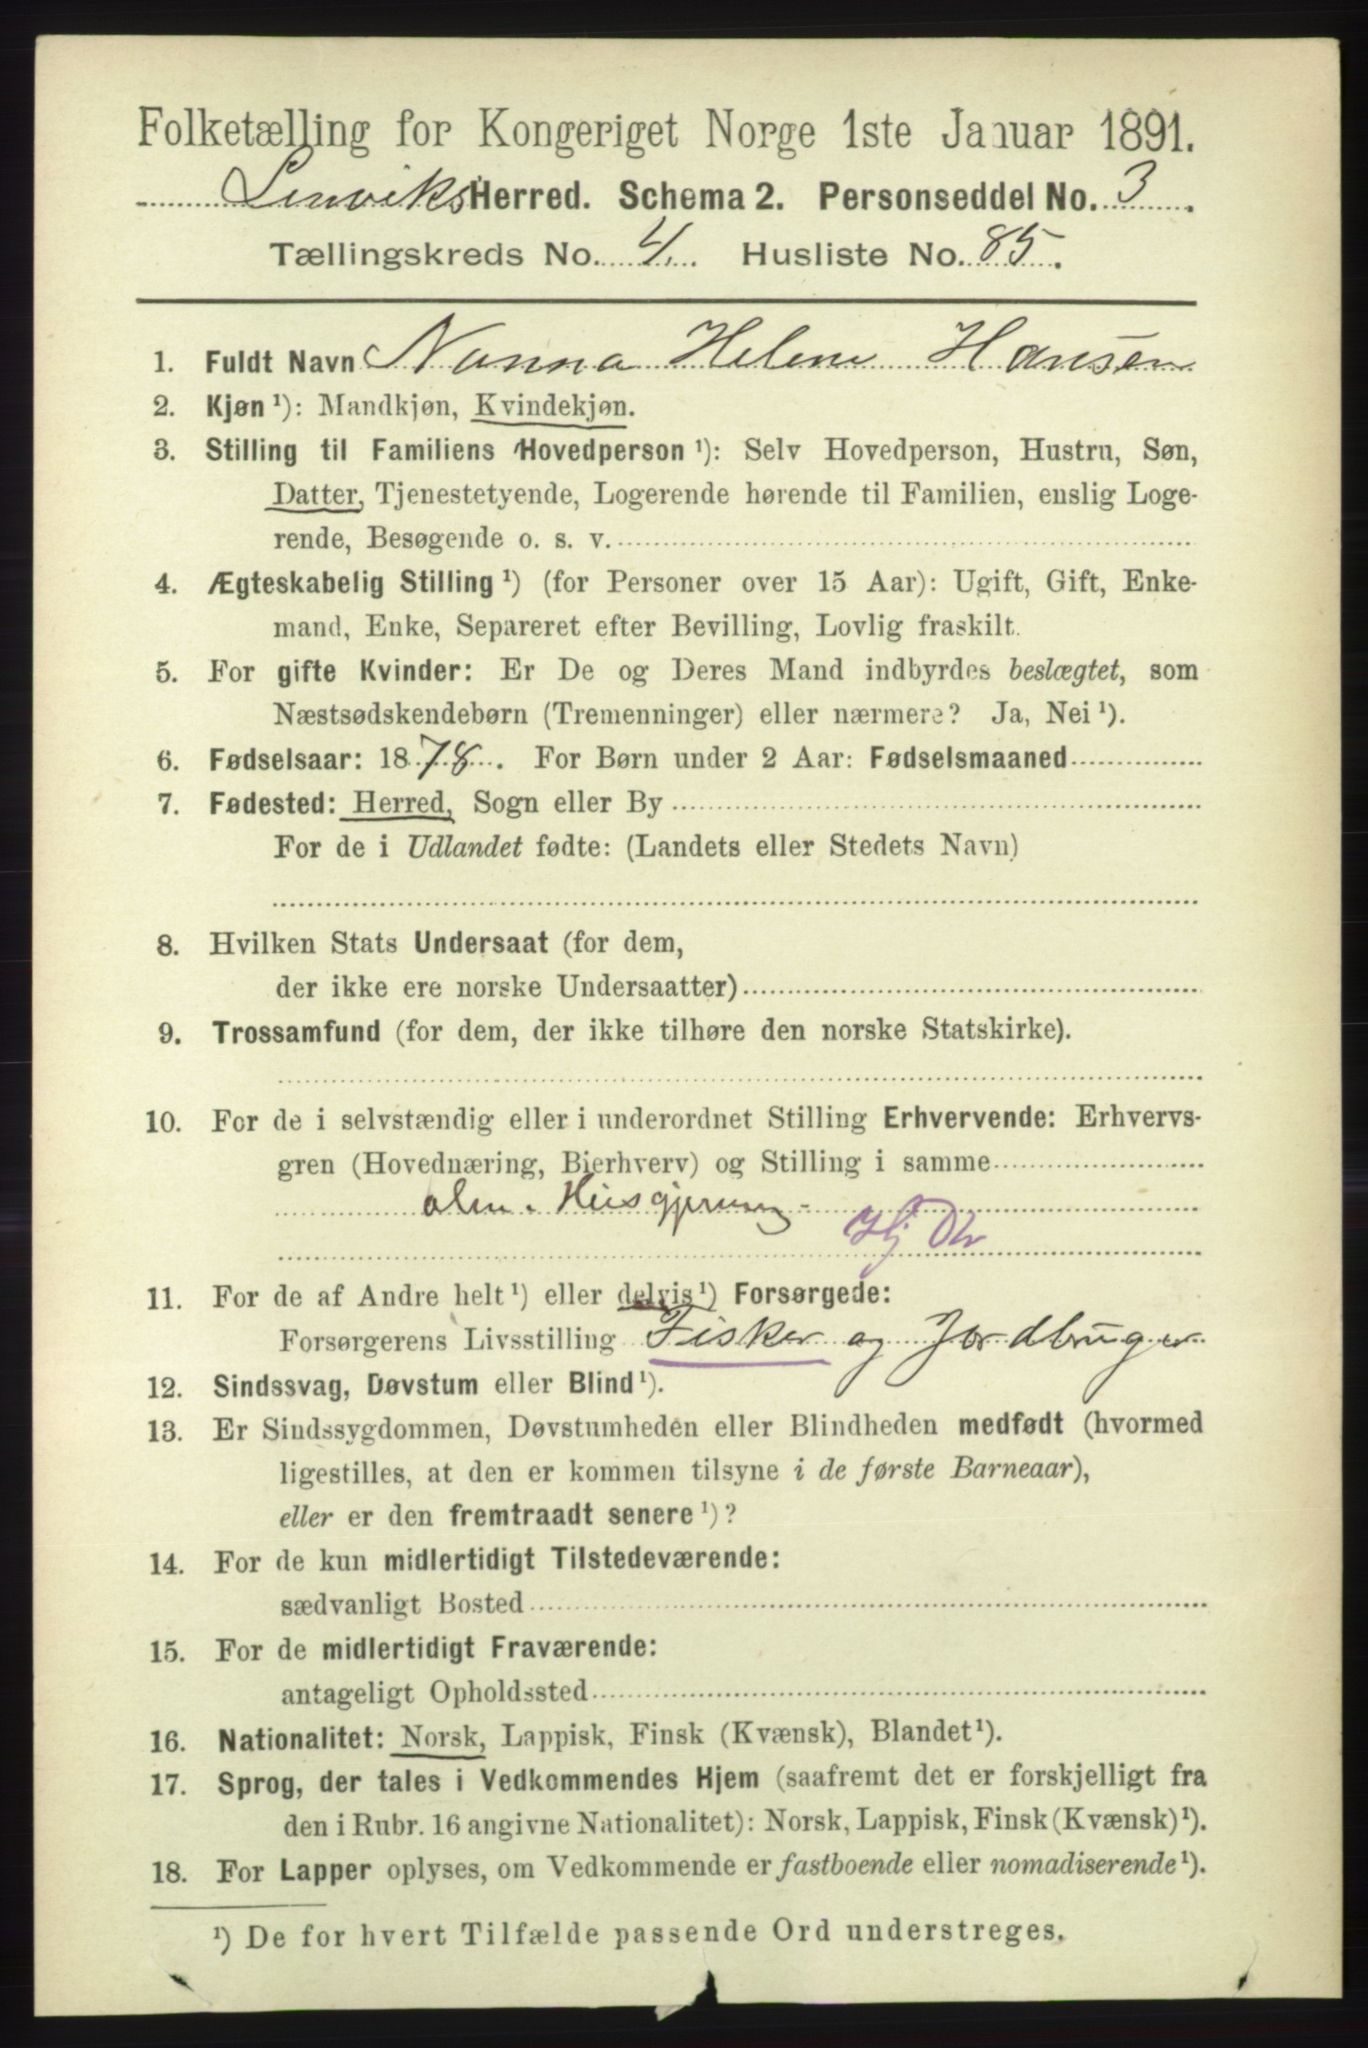 Folketælling for Kongeriget Norge 1ste Januar 1891.
Lenviks Herred. Schema 2. Personseddel No. 3.
Tællingskreds No. 4. Husliste No. 85.
1. Fuldt Navn Nanna Helene Hansen
2. Kjøn ¹): Mandkjøn, Kvindekjøn.
3. Stilling til Familiens Hovedperson ¹): Selv Hovedperson, Hustru, Søn,
Datter, Tjenestetyende, Logerende hørende til Familien, enslig Loge-
rende, Besøgende o. s. v.
4. Ægteskabelig Stilling ¹) (for Personer over 15 Aar): Ugift, Gift, Enke-
mand, Enke, Separeret efter Bevilling, Lovlig fraskilt.
5. For gifte Kvinder: Er De og Deres Mand indbyrdes beslægtet, som
Næstsødskendebørn (Tremenninger) eller nærmere? Ja, Nei ¹).
6. Fødselsaar: 1878. For Børn under 2 Aar: Fødselsmaaned
7. Fødested: Herred, Sogn eller By
For de i Udlandet fødte: (Landets eller Stedets Navn)
8. Hvilken Stats Undersaat (for dem,
der ikke ere norske Undersaatter)
9. Trossamfund (for dem, der ikke tilhøre den norske Statskirke).
10. For de i selvstændig eller i underordnet Stilling Erhvervende: Erhvervs-
gren (Hovednæring, Bierhverv) og Stilling i samme
alm. Husgjerning
Hj Dtr
11. For de af Andre helt ¹) eller delvis ¹) Forsørgede:
Forsørgerens Livsstilling Fisker og Jordbruger
12. Sindssvag, Døvstum eller Blind ¹).
13. Er Sindssygdommen, Døvstumheden eller Blindheden medfødt (hvormed
ligestilles, at den er kommen tilsyne i de første Barneaar),
eller er den fremtraadt senere ¹)?
14. For de kun midlertidigt Tilstedeværende:
sædvanligt Bosted
15. For de midlertidigt Fraværende:
antageligt Opholdssted
16. Nationalitet: Norsk, Lappisk, Finsk (Kvænsk), Blandet ¹).
17. Sprog, der tales i Vedkommendes Hjem (saafremt det er forskjelligt fra
den i Rubr. 16 angivne Nationalitet): Norsk, Lappisk, Finsk (Kvænsk) ¹).
18. For Lapper oplyses, om Vedkommende er fastboende eller nomadiserende ¹).
¹) De for hvert Tilfælde passende Ord understreges.